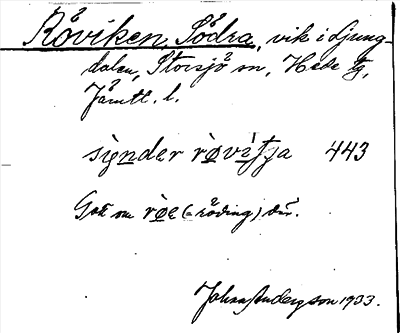 Röviken, Södra, vik i Ljung-
dalen, Storsjö sn, Hede tg,
Jämtl. l.
signder røvitja 443
Gott om røe (= röding) där.
Johan Anderson 1933.